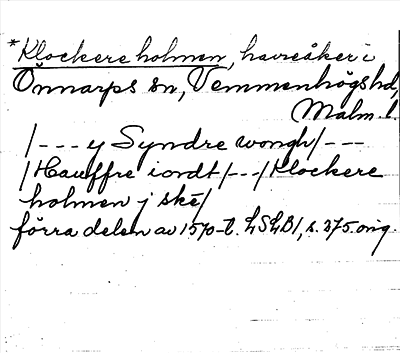 *Klockere holmen, havreåker i
Önnarps sn, Vemmenhögs hd,
Malm. l.
/--- y Syndre wongh/---
/Hauffre iordt/---/Klockere
holmen j ske/
förra delen av 1570-t. LSLB1, s. 375 orig.